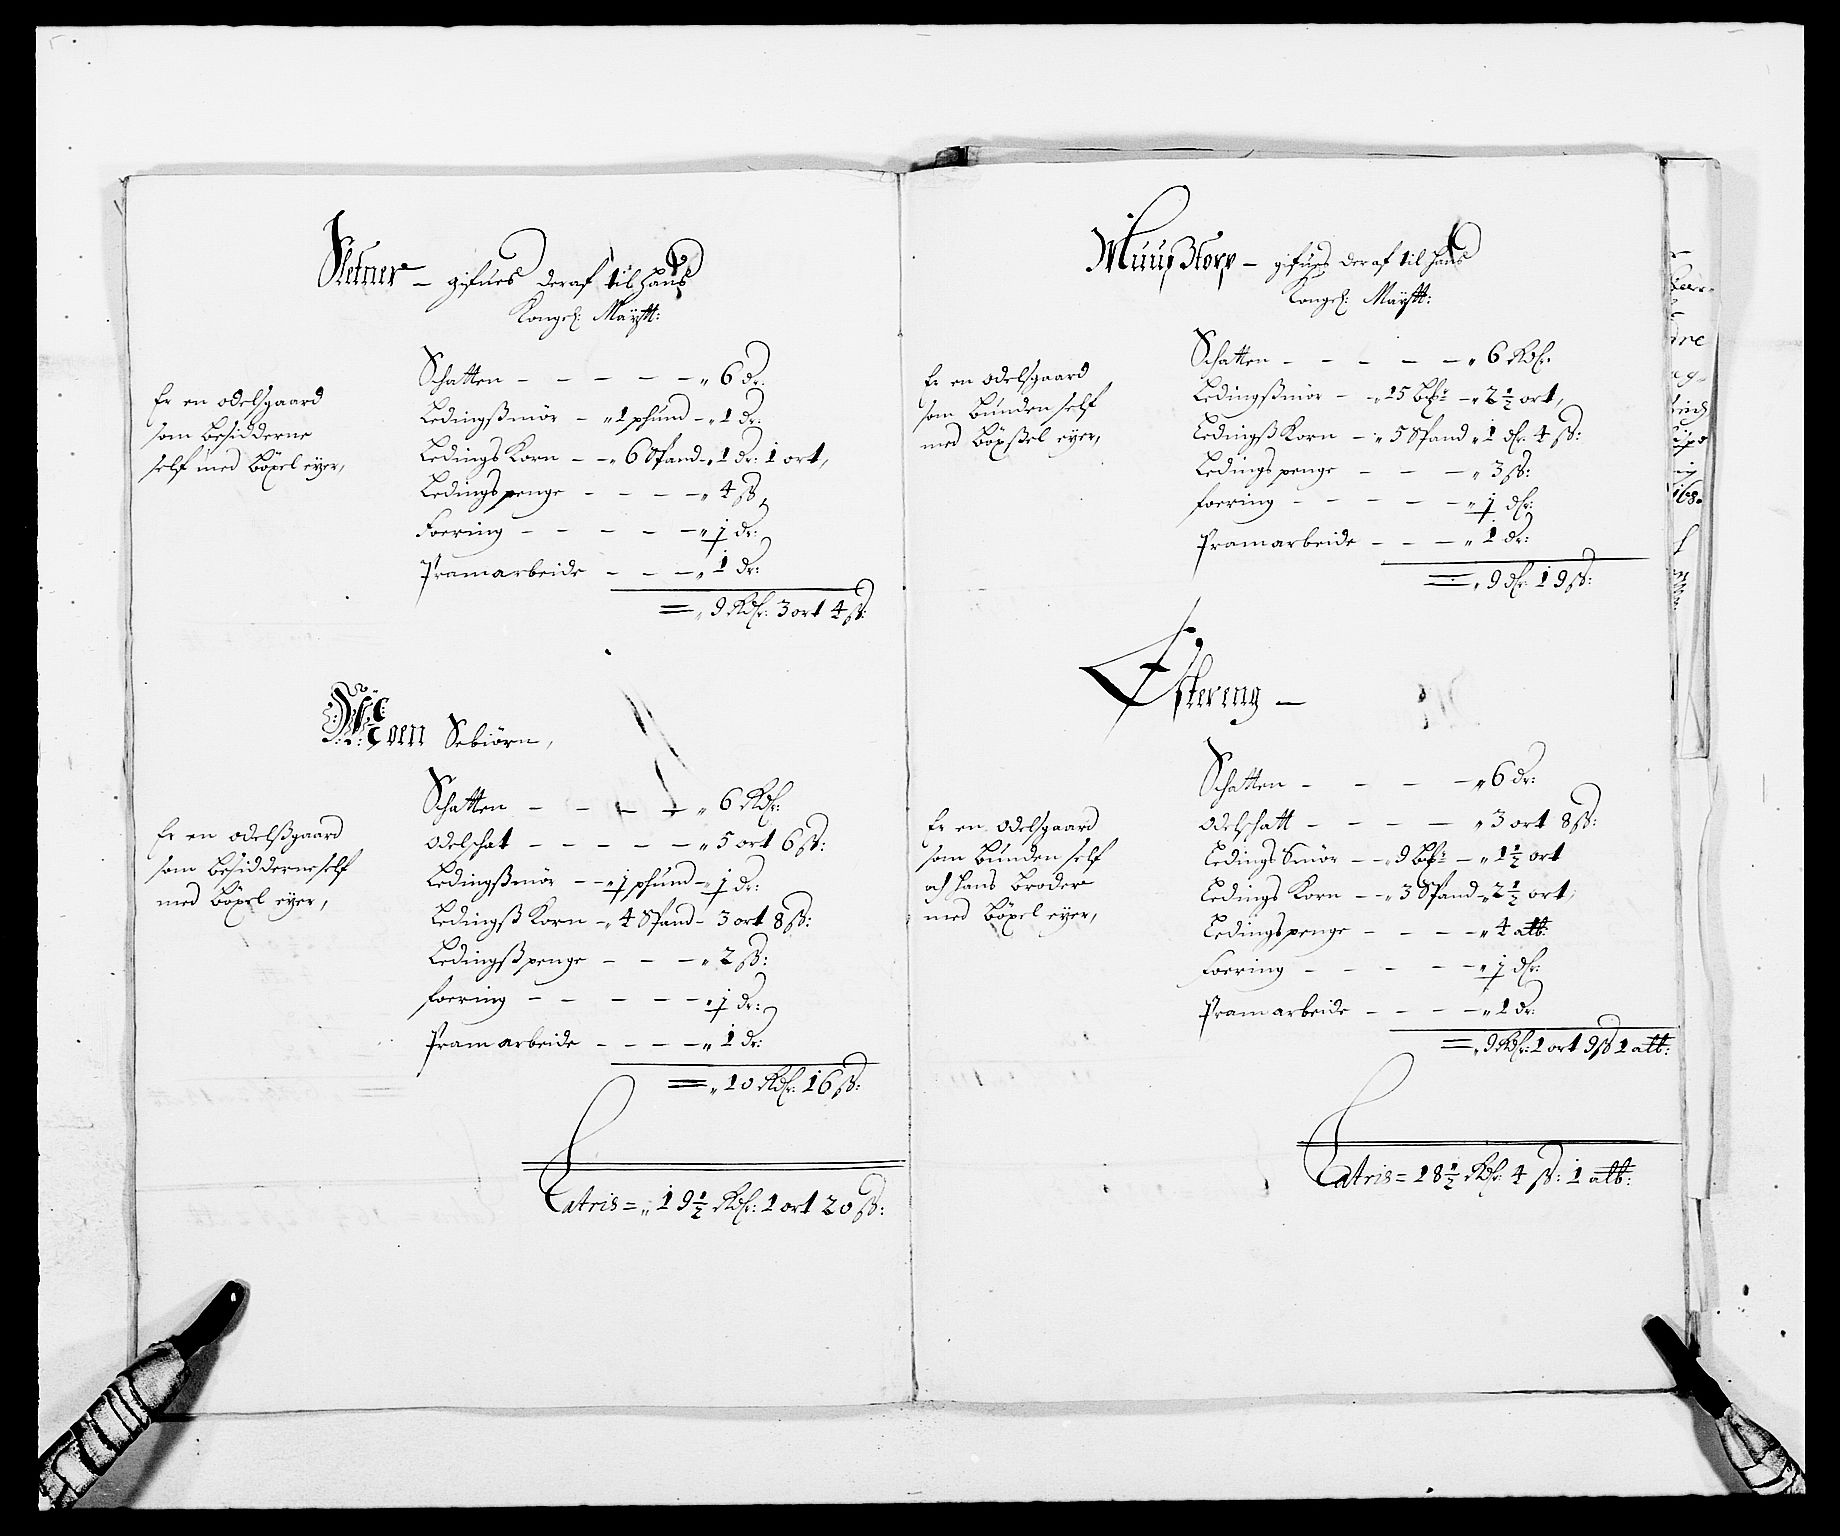 Sletner – gifues deraf til hans
Kongel: Maÿtt:
Er en odelsgaard
som besidderne
self med böxel eyer,
Schatten – – – – – „ 6 dr:
Ledingßmör – „ 1 phund – „ 1 dr:
Ledings Korn – – „ 6 Spand – „ 1 dr: 1 ort,
Ledings penge – – – – „ 4 ß,
Foering – – – – – „ 1 dr:
Pramarbeide – – – „ 1 dr:
= „ 9 Rdr: 3 ort 4 ß:
Moen Sebiörn,
Er en odelßgaard
som besidderne self
med böxel eyer,
Schatten – – – – „ 6 Rdr:
Odelschat – – – – – „ 5 ort 6 ß:
Ledingßmör – – „ 1 phund – „ 1 dr:
Ledingß Korn – „ 4 Spand – 3 ort 8 ß:
Ledingß penge – – – „ 2 ß:
foering – – – – – „ 1 dr:
Pramarbeide – – – – „ 1 dr:
= „ 10 Rdr: 16 ß:
Latris = „ 19 ½ Rdr: 1 ort 20 ß:
Muußtorp – gifues deraf til hans
Kongel: Maÿtt:
Er en odelsgaard
som bunden self
med böxßel eyer,
Schatten – – – – – „ 6 Rdr:
Ledingßmör – „ 15 – „ 2 ½ ort,
Ledingß Korn – „ 5 Spand „ 1 dr: 4 ß:
Ledings penge – – – „ 3 ß:
foering – – – – – „ 1 dr:
Pramarbeide – – – „ 1 dr:
= „ 9 dr: 19 ß:
Östereng –
Er en Odelsgaard
som bunden self
och hans broder
med böxel eyer,
Schatten – – – – „ 6 dr:
Odelschatt – – – – „ 3 ort 8 ß:
Ledings Smör – – „ 9 – „ 1 ½ ort
Ledings Korn – – „ 3 Spand – „ 2 ½ ort,
Ledings penge – – – – „ 4 alb:
Foering – – – – – „ 1 dr:
Pramarbeide – – – – „ 1 dr:
= „ 9 Rdr: 1 ort 9 ß 1 alb:
Latris = 18 ½ Rdr: 4 ß: 1 alb: